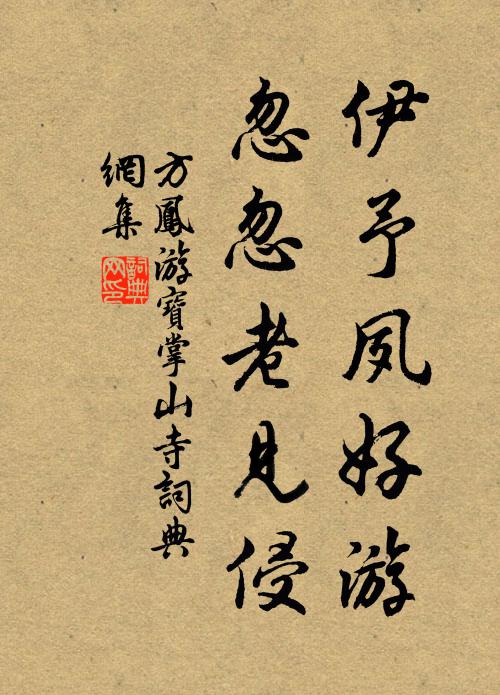 伊予夙好游
忽忽老見侵
方鳳游寶掌山寺詞典
網集
詞典網印